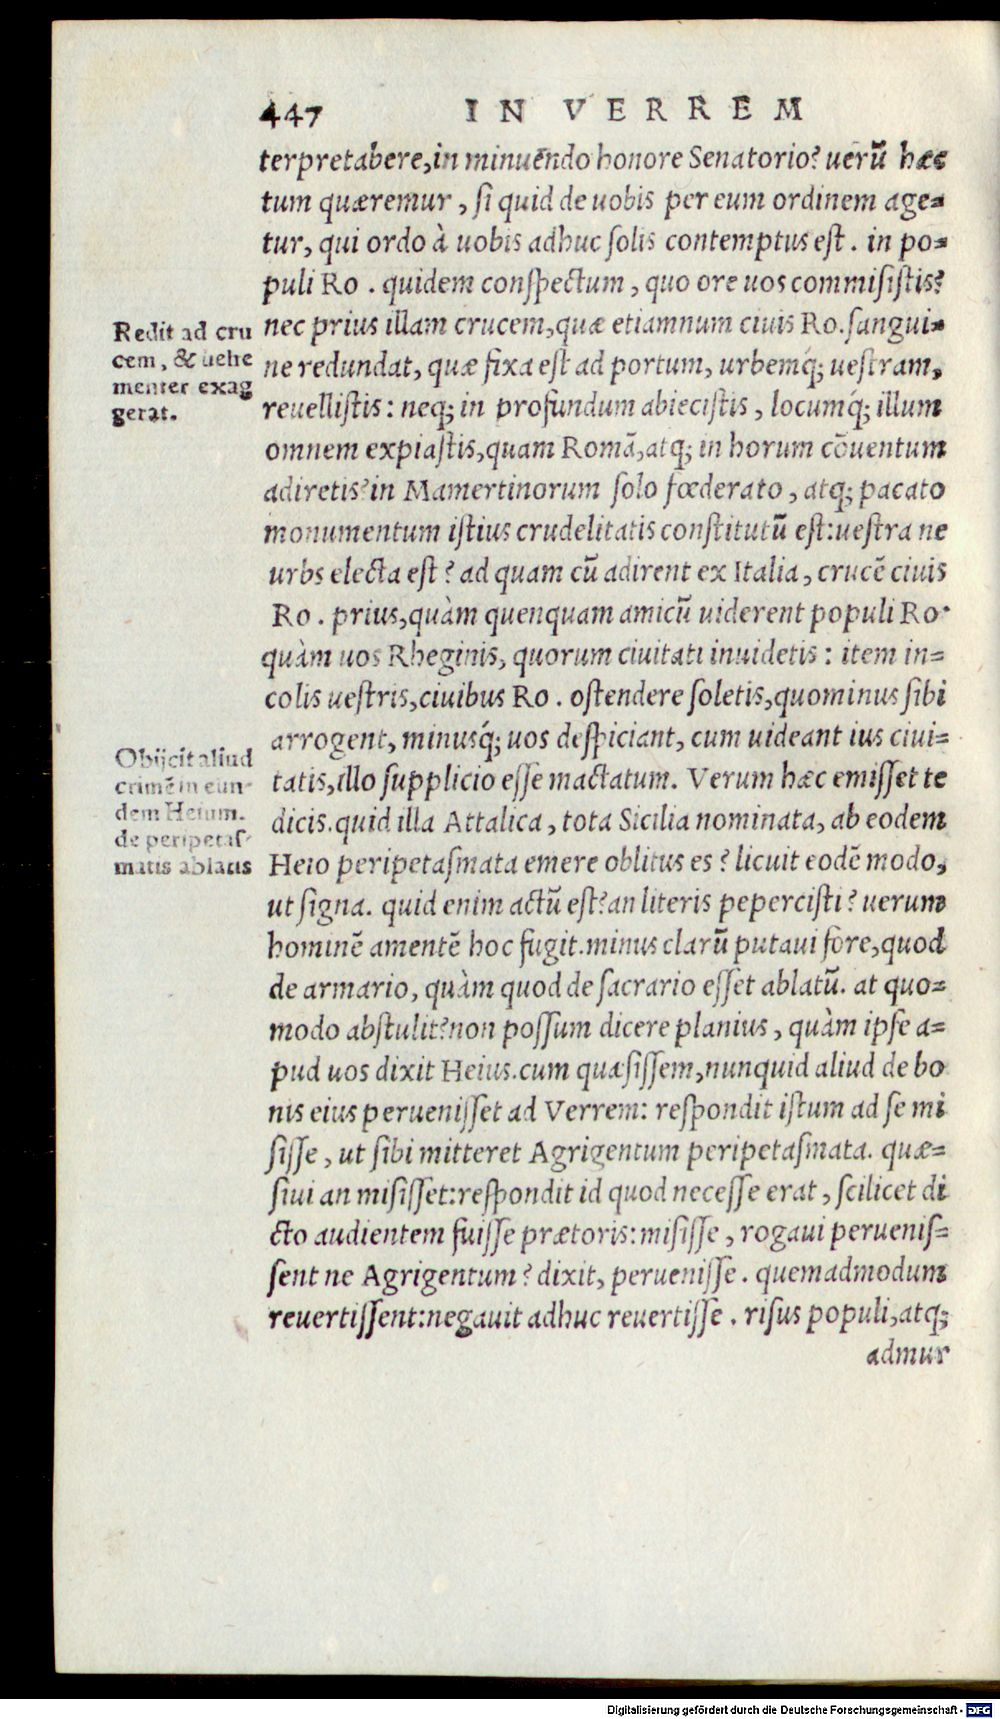 447 IN VERREM
terpretabere,in minuēndo honore Senatorio? uerū hæc
tum quæremur , ſi quid de uobis per eum ordinem age-
tur, qui ordo à uobis adhuc ſolis contemptus eſt . in po-
puli Ro . quidem conſpectum , quo ore uos commiſiſtis?
nec prius illam crucem,quæ etiamnum ciuis Ro.ſangui-
ne redundat, quæ fixa eſt ad portum, urbemq́; ueſtram,
reuelliſtis : neq; in profundum abieciſtis , locumq́; illum
omnem expiaſtis,quam Romā,atq; in horum cōuentum
adiretis?in Mamertinorum ſolo fœderato , atq; pacato
monumentum iſtius crudelitatis conſtitutū eſt:ueſtra ne
urbs electa eſt ? ad quam cū adirent ex Italia , crucē ciuis
Ro . prius,quàm quenquam amicū uiderent populi Ro.
quàm uos Rheginis, quorum ciuitati inuidetis : item in-
colis ueſtris,ciuibus Ro . oſtendere ſoletis,quominus ſibi
arrogent, minusq́; uos deſpiciant, cum uideant ius ciui-
tatis,illo ſupplicio eſſe mactatum. Verum hæc emiſſet te
dicis.quid illa Attalica , tota Sicilia nominata, ab eodem
Heio peripetaſmata emere oblitus es ? licuit eodē modo,
ut ſigna. quid enim actū eſt?an literis pepercisti ? uerum
hominē amentē hoc fugit.minus clarū putaui fore,quod
de armario, quàm quod de ſacrario eſſet ablatū. at quo-
modo abſtulit?non poſſum dicere planius , quàm ipſe a-
pud uos dixit Heius.cum quæſiſſem,nunquid aliud de bo
nis eius perueniſſet ad Verrem: reſpondit iſtum ad ſe mi
ſiſſe , ut ſibi mitteret Agrigentum peripetaſmata. quæ-
ſiui an miſiſſet:reſpondit id quod neceſſe erat , ſcilicet di
cto audientem fuiſſe prætoris:miſiſſe , rogaui perueniſ-
ſent ne Agrigentum ? dixit, perueniſſe . quemadmodum
reuertiſſent:negauit adhuc reuertiſſe . riſus populi,atq;
admur
Redit ad cru
cem, & uehe
menter exag
gerat.
Obijcit aliud
crimē in eun-
dem Heium.
de peripetaſ-
matis ablatis
Digitalisierung gefördert durch die Deutsche Forschungsgemeinschaft - DFG